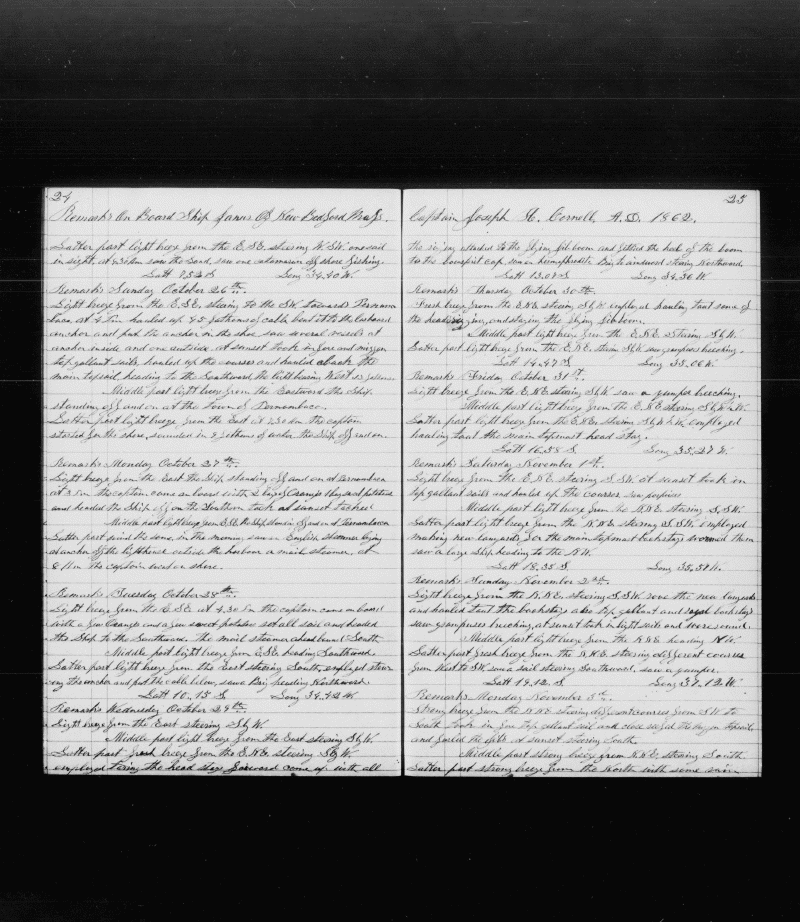 24
Remarks On Board Ship James Of New Bedford Mass.
Latter part light breeze from the E.S.E. steering W.S.W. one sail
in sight, at 4.30 PM saw the land, saw one catamaran off shore fishing.
Latt 7.52 S Long 34.40 W.
Remarks Sunday October 26th.
Light breeze from the E.S.E. steering to the SW towards Pernam
buco, at 4 PM hauled up 45 fathoms of cable, bent it to the larboard
anchor and put the anchor in the shoe, saw several vessels at
anchor inside and one outside, at sunset took in fore and mizzen
top gallant sails, hauled up the courses and hauled aback the
main topsail, heading to the Southward, the light bearing West
Middle part light breeze from the Eastward the Ship
standing off and on at the town of Pernambuco.
Latter part light breeze from the East at 7.30 AM the captain
started for the shore, sounded in 9 fathoms of water the Ship off and on.
Remarks Monday October 27th.
Light breeze from the East the Ship standing off and on at Pernambuco
at 3 PM the captain came on board with 2 bags of Oranges Potatoes
and headed the Ship off on the Northern tack at sunset tacked
Middle part light breeze from E.S.E. the Ship standing off and on at Pernambuco
Latter part wind the same, in the morning saw an English steamer lying
at anchor off the lighthouse outside the harbour a mail steamer, at
8 AM the captain went on shore.
Remarks Tuesday October 28th.
Light breeze from the E.S.E. at 4.30 PM the captain came on board
with a few Oranges and a few sweet potatoes set all sail and headed
the Ship to the Southward. the mail steamer ahead bound South.
Middle part light breeze from E.S.E. heading Southward
Latter part light breeze from the East steering South, employed stow
ing the anchor and put the cable below, saw a Brig heading Northward
Latt 10.15 S Long 34.42 W.
Remarks Wednesday October 29th.
Light breeze from the East steering S by W.
Middle part light breeze from the East steering S by W.
Latter part fresh breeze from the E.N.E. steering S by W.
employed taring the head stays forward come up with all
25
Captain Joseph H. Cornell, A.D. 1862.
the rigging attached to the flying jib boom and settled the heel of the boom
to the bowsprit cap, saw a hermaphrodite Brig to windward steering Northward.
Latt 13.08 S Long 34.36 W.
Remarks Thursday October 30th.
Fresh breeze from the E.N.E. steering S by W employed hauling taut some of
the head rigging, and staying the flying jib boom.
Middle part light breeze from the E.N.E. steering S by W.
Latter part light breeze from the E.N.E. steering S by W saw grampuses breeching.
Latt 14.47 S Long 35.06 W.
Remarks Friday October 31st.
Light breeze from the E.N.E. steering S by W saw a grampus breeching.
Middle part light breeze from the E.N.E. steering S by W ½ W.
Latter part light breeze from the E.N.E. steering S by W ½ W. employed
hauling taut the main topmast head stay.
Latt 16.58 S. Long 35.27 W.
Remarks Saturday November 1st.
Light breeze from the E.N.E. steering S.S.W. at sunset took in
top gallant sails and hauled up the courses. saw porpoises
Middle part light breeze from the N.N.E. steering S.S.W.
Latter part light breeze from the N.N.E. steering S.S.W. employed
making new lanyards for the main topmast backstays wormed them
saw a large Ship heading to the N.W.
Latt 18.35 S Long 35.58 W.
Remarks Sunday November 2nd.
Light breeze from the N.N.E. steering S.S.W. rove the new lanyards
and hauled taut the backstays also top gallant and royal backstays
saw grampuses breeching, at sunset took in light sails and wore round.
Middle part light breeze from the N.N.E. heading N.W.
Latter part fresh breeze from the N.N.E. steering different courses
from West to SW. saw a sail steering Southward. saw a gamper.
Latt 19.12 S. Long 37.12 W.
Remarks Monday November 3rd.
Strong breeze from the N.N.E. steering different courses from SW to
South took in fore top gallant sail and close reefed the mizzen topsail,
and furled the jib at sunset steering South.
Middle part strong breeze from N.N.E. steering South.
Latter part strong breeze from the North with some rain